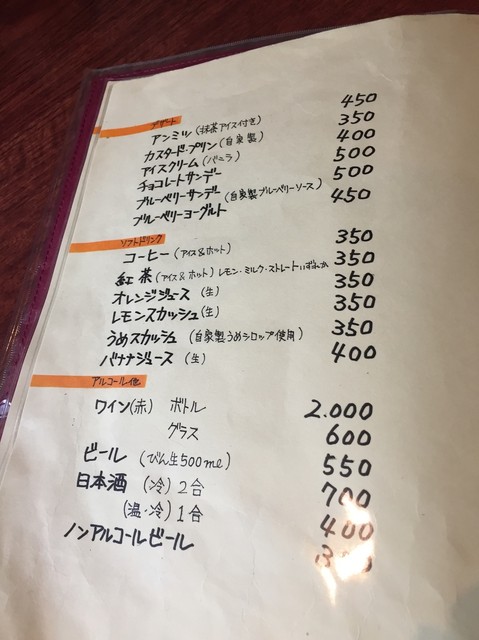 デザート
アンミツ(抹茶アイス付き) 450
カスタード・プリン(自家製) 350
アイスクリーム(バニラ) 400
チョコレートサンデー 500
ブルーベリーサンデー(自家製ブルーベリーソース) 500
ブルーベリーヨーグルト 450
ソフトドリンク
コーヒー(アイス&ホット) 350
紅茶(アイス&ホット)レモン・ミルク・ストレートいずれか 350
オレンジジュース(生) 350
レモンスカッシュ(生) 350
うめスカッシュ(自家製うめシロップ使用) 350
バナナジュース(生) 400
アルコール他
ワイン(赤) ボトル 2.000
グラス 600
ビール(びん生500ml) 550
日本酒(冷)2合 700
(温・冷)1合 400
ノンアルコールビール